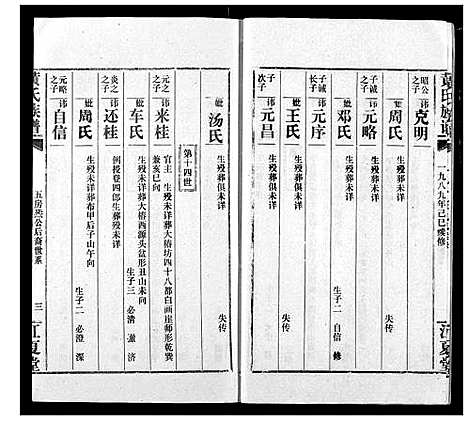 黄氏族谱
一九八九年己巳续修
江夏堂
昭公之子 讳克明
妣周氏 生殁葬俱未详
子诚之子 讳元略 生殁葬俱未详 失传
妣邓氏 生殁葬俱未详 生子二 自信 修
子诚长子 讳元序 生殁葬俱未详
妣王氏 生殁葬俱未详
子次子 讳元昌 生殁葬俱未详 失传
妣汤氏 生殁葬俱未详 失传
第十四世
元之子 讳来桂 官主 生殁未详葬大椿坊四十八都白画崖师形乾巽兼亥巳向
妣车氏 生殁未详葬大椿西源头盆形丑山未向 生子三 必清 济
炎之子 讳还桂 例授卷四郎生葬殁未详 失传
妣周氏 生殁未详葬布甲后子山午向 生子二 必澄 深
元略之子 讳自信
黄氏族谱
五房 公后裔世系
三
江夏堂